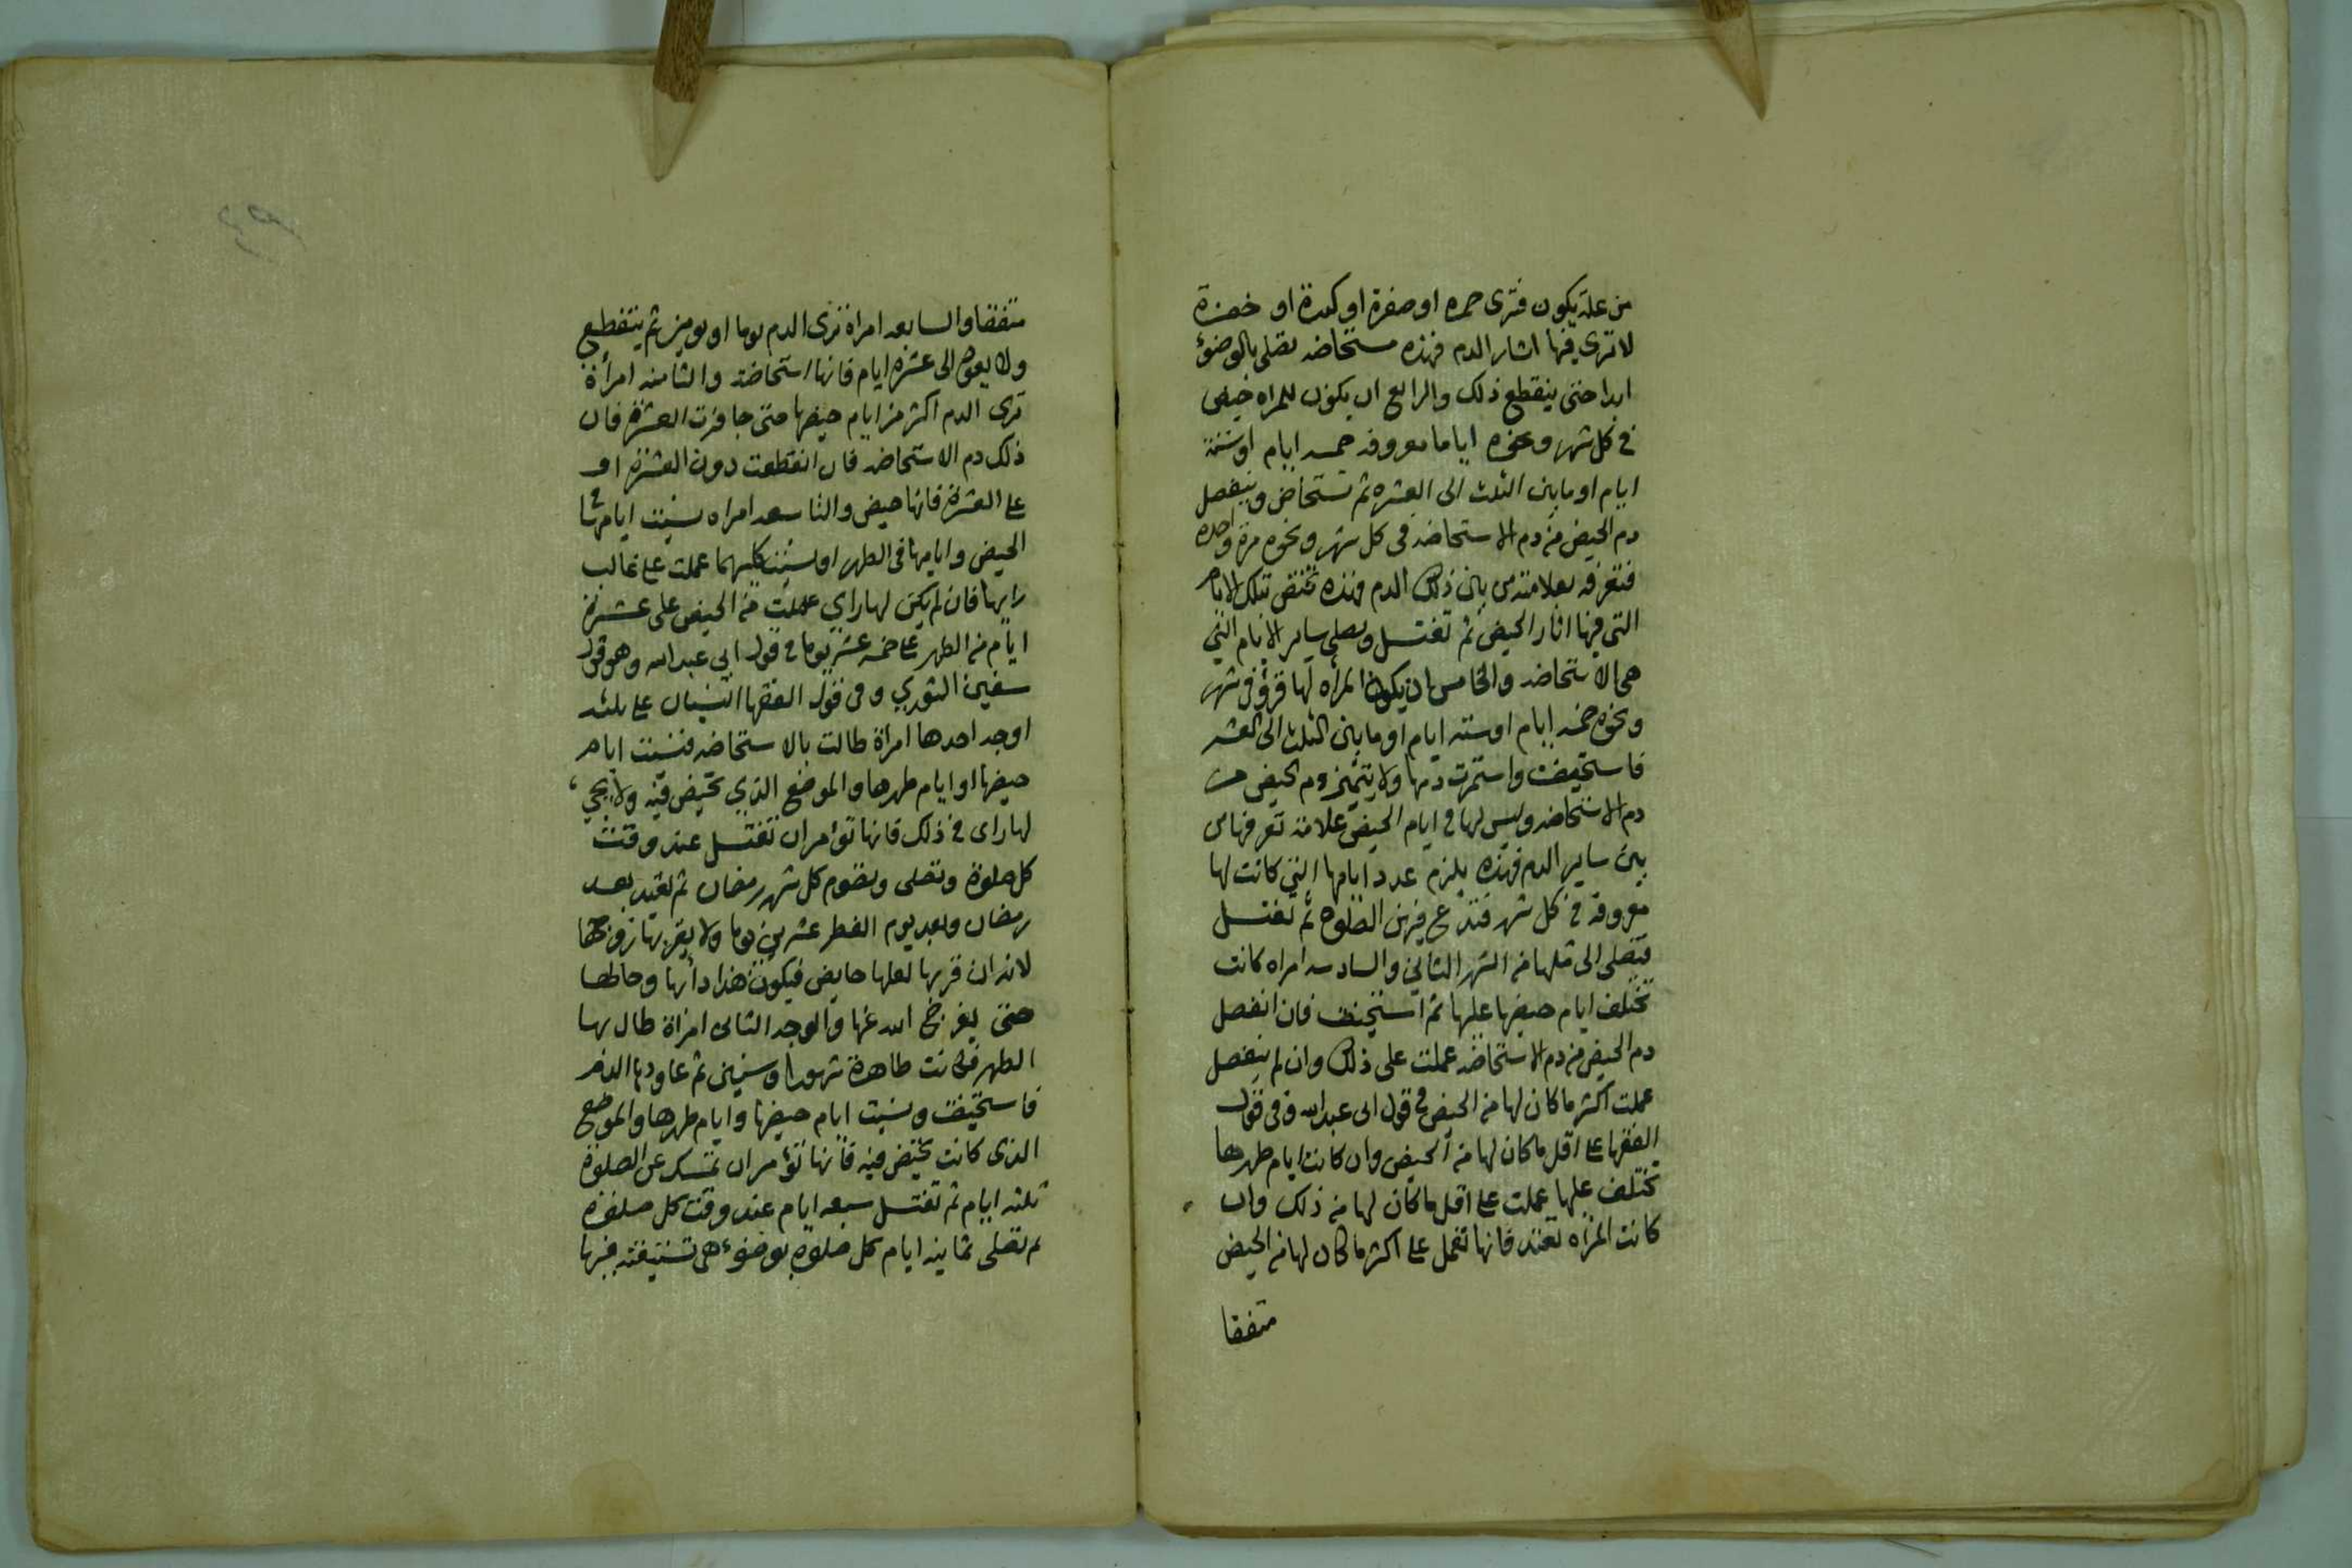 من علة يكون فترى حمره او صفرة او كدرة او خضرة
لا ترى فيها اثار الدم فهذه مستحاضه تصلى بالوضوء
ابدا حتى ينقطع ذلك والرابع ان يكون للمراه حيض
فى كل شهر ونحوه اياما معروفه خمسه ايام او ستة
ايام او ما بين الثلث الى العشره ثم تستحاض وينفصل
دم الحيض من دم الاستحاضه فى كل شهر ونحوه مرة واحده
فتعرفه بعلامته من بين ذلك الدم فهذه تحيض تلك الايام
التى فيها اثار الحيض ثم تغتسل وتصلى ساير الايام التي
هى الاستحاضه والخامس ان يكون المراه لها قرؤ فى شهر
ونحوه خمسه ايام او سته ايام او ما بين الثلث الى العشر
فاستحيضت واستمرت دمها ولا يتميز دم الحيض من
دم الاستحاضه وليس لها فى ايام الحيض علامة تعرفها من
بين ساير الدم فهذه يلزم عدد ايامها التي كانت لها
معروفه فى كل شهر فتدع فيهن الصلوه ثم تغتسل
فتصلى الى مثلها من الشهر الثاني والسادسه امراه كانت
تختلف ايام حيضها عليها ثم استحيضت فان انفصل
دم الحيض من دم الاستحاضه عملت على ذلك وان لم ينفصل
عملت اكثر ما كان لها من الحيض فى قول ابى عبد الله وفى قول
الفقها على اقل ما كان لها من الحيض وان كانت ايام طهرها
تختلف عليها عملت على اقل ما كان لها من ذلك وان
كانت المراه تعتد فانها تعمل على اكثر ما كان لها من الحيض
متفقا
متفقا والسابعه امراة ترى الدم يوما او يومين ثم ينقطع
ولا يعود الى عشره ايام فانها استحاضة والثامنه امرأة
ترى الدم اكثر من ايام حيضها حتى جاوزت العشرة فان
ذلك دم الاستحاضه فان انقطعت دون العشره او
على العشرة فانها حيض والتاسعه امراه نسيت ايامها فى
الحيض وايامها فى الطهر او نسيت كليهما عملت على غالب
رايها فان لم يكن لها راي عملت من الحيض على عشرة
ايام من الطهر على خمسه عشر يوما فى قول ابى عبد الله وهو قول
سفين الثوري وفى قول الفقها النسيان على ثلثه
اوجه احدها امراة طالت بالاستحاضه فنسيت ايام
حيضها او ايام طهرها والموضع الذي تحيض فيه ولا يجي
لها راى فى ذلك فانها تؤمر ان تغتسل عند وقت
كل صلوة وتصلى وتصوم كل شهر رمضان ثم تعيد بعد
رمضان وبعد يوم الفطر عشرين يوما ولا يقربها زوجها
لانه ان قربها لعلها حايض فيكون هذا دأبها وحالها
حتى يفرج الله عنها والوجه الثانى امراة طال بها
الطهر فكانت طاهرة شهورا او سنين ثم عاودها الدم
فاستحيضت ونسيت ايام حيضها وايام طهرها والموضع
الذى كانت تحيض فيه فانها تؤمر ان تمسك عن الصلوة
ثلثه ايام ثم تغتسل سبعه ايام عند وقت كل صلوة
ثم تصلى ثمانيه ايام كل صلوة بوضوء هى تستيقن فيها